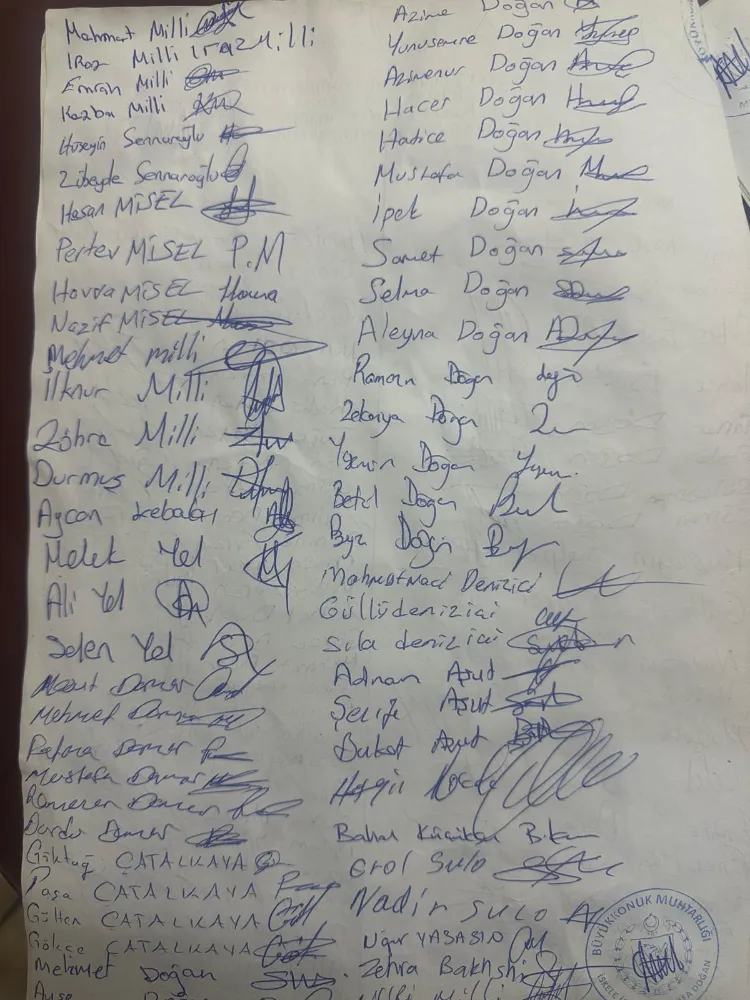 Mehmat Milli
Iraz Milli Iraz Milli
Emran Milli
Kazba Milli
Hüseyin Sennaroğlu
Zübeyde Sennaroğlu
Hasan MİSEL
Pertev MİSEL P.M
Havva MİSEL Havva
Nazif MİSEL
Mehmet milli
İlknur Milli
Zöhre Milli
Durmuş Milli
Aycan kebabçı
Melek Yel
Ali Yel
Selen Yel
Mesut Demer
Mehmet
Fatma Demer
Mustafa Demer
Ramazan Demer
Demer
Göktuğ ÇATALKAYA
Paşa ÇATALKAYA
Gülten ÇATALKAYA
Gökçe ÇATALKAYA
Mehmet Doğan
Ayşe
Azime Doğan
Yunusemre Doğan
Azimenur Doğan
Hacer Doğan
Hatice Doğan
Mustafa Doğan
İpek Doğan
Samet Doğan
Selma Doğan
Aleyna Doğan
Ramazan Dogan
Zekeriya Dogan
Yasemin Dogan
Betül Dogan
Doğan
Mahmutnaci Denizici
Güllüdenizici
Sıla denizici
Adnan Asut
Şerife Asut
Buket Asut
Erol Sulo
Nadir SULO
Uğur YASASIN
Zehra Bakhshi
Milli
BÜYÜKKONUK MUHTARLIĞI
DOĞAN